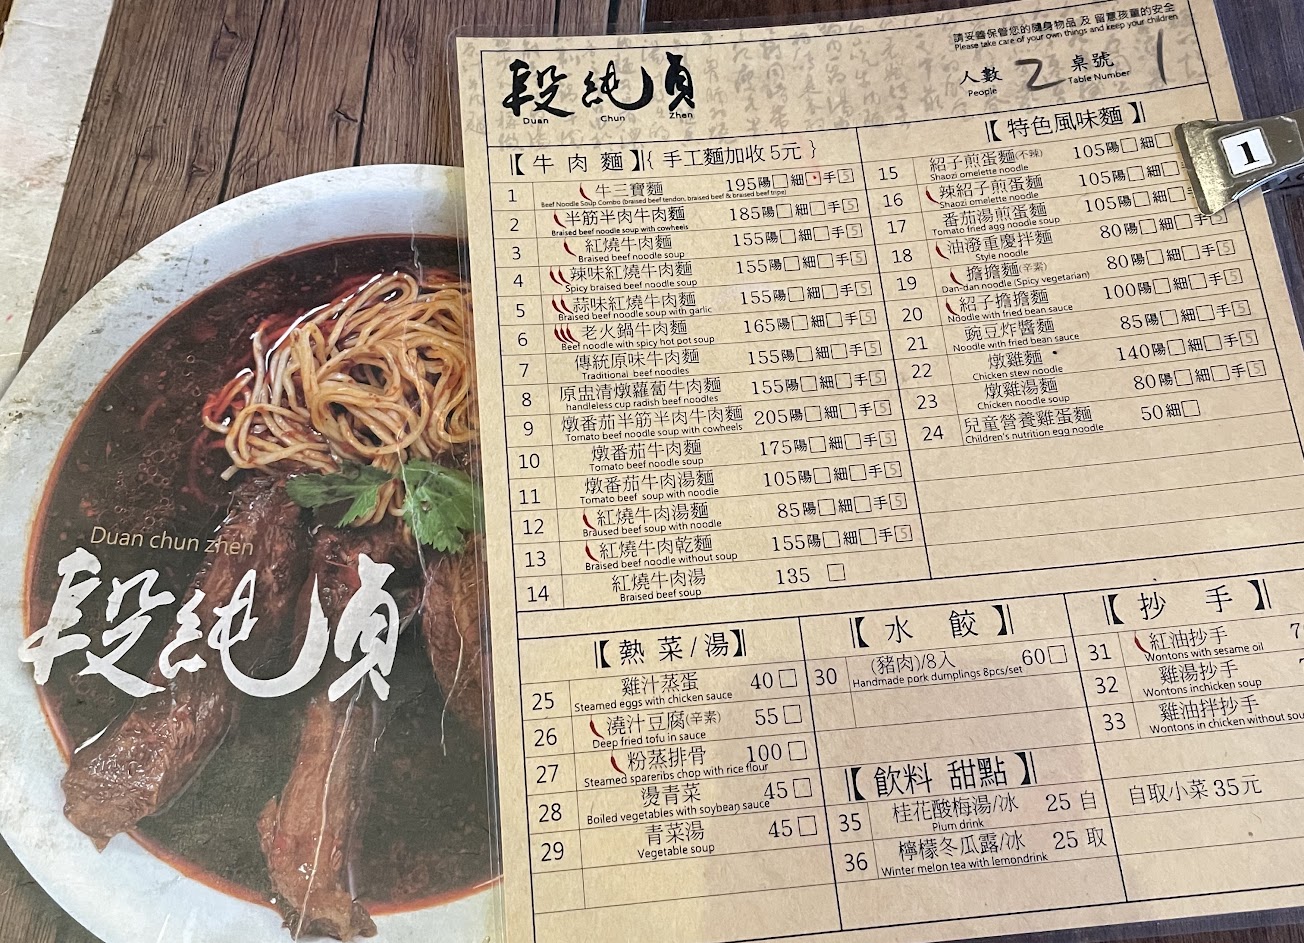 請妥善保管您的隨身物品 及 留意孩童的安全
Please take care of your own things and keep your children
段純貞
Duan Chun Zhen
人數 2 桌號 1
People Table Number
1
【牛肉麵】{ 手工麵加收 5元 }
1 牛三寶麵 195 陽□ 細□ 手5
Beef Noodle Soup Combo (braised beef tendon, braised beef & braised beef tripe)
2 半筋半肉牛肉麵 185 陽□ 細□ 手5
Braised beef noodle soup with cowheels
3 紅燒牛肉麵 155 陽□ 細□ 手5
Braised beef noodle soup
4 辣味紅燒牛肉麵 155 陽□ 細□ 手5
Spicy braised beef noodle soup
5 蒜味紅燒牛肉麵 155 陽□ 細□ 手5
Braised beef noodle soup with garlic
6 老火鍋牛肉麵 165 陽□ 細□ 手5
Beef noodle with spicy hot pot soup
7 傳統原味牛肉麵 155 陽□ 細□ 手5
Traditional beef noodles
8 原盅清燉蘿蔔牛肉麵 155 陽□ 細□ 手5
handleless cup radish beef noodles
9 燉番茄半筋半肉牛肉麵 205 陽□ 細□ 手5
Tomato beef noodle soup with cowheels
10 燉番茄牛肉麵 175 陽□ 細□ 手5
Tomato beef noodle soup
11 燉番茄牛肉湯麵 105 陽□ 細□ 手5
Tomato beef soup with noodle
12 紅燒牛肉湯麵 85 陽□ 細□ 手5
Braused beef soup with noodle
13 紅燒牛肉乾麵 155 陽□ 細□ 手5
Braised beef noodle without soup
14 紅燒牛肉湯 135 □
Braised beef soup
【特色風味麵】
15 紹子煎蛋麵(不辣) 105 陽□ 細□
Shaozi omelette noodle
16 辣紹子煎蛋麵 105 陽□ 細□
Shaozi omelette noodle
17 番茄湯煎蛋麵 105 陽□ 細□
Tomato fried agg noodle soup
18 油潑重慶拌麵 80 陽□ 細□ 手5
Style noodle
19 擔擔麵(辛素) 80 陽□ 細□ 手5
Dan-dan noodle (Spicy vegetarian)
20 紹子擔擔麵 100 陽□ 細□ 手5
Noodle with fried bean sauce
21 豌豆炸醬麵 85 陽□ 細□ 手5
Noodle with fried bean sauce
22 燉雞麵 140 陽□ 細□ 手5
Chicken stew noodle
23 燉雞湯麵 80 陽□ 細□ 手5
Chicken noodle soup
24 兒童營養雞蛋麵 50 細□
Children's nutrition egg noodle
【熱菜/湯】
25 雞汁蒸蛋 40 □
Steamed eggs with chicken sauce
26 澆汁豆腐(辛素) 55 □
Deep fried tofu in sauce
27 粉蒸排骨 100 □
Steamed spareribs chop with rice flour
28 燙青菜 45 □
Boiled vegetables with soybean sauce
29 青菜湯 45 □
Vegetable soup
【水餃】
30 (豬肉)/8入 60 □
Handmade pork dumplings 8pcs/set
【飲料 甜點】
35 桂花酸梅湯/冰 25 自
Plum drink
36 檸檬冬瓜露/冰 25 取
Winter melon tea with lemondrink
【抄手】
31 紅油抄手 7
Wontons with sesame oil
32 雞湯抄手
Wontons inchicken soup
33 雞油拌抄手
Wontons in chicken without sou
自取小菜 35元
Duan chun zhen
段純貞